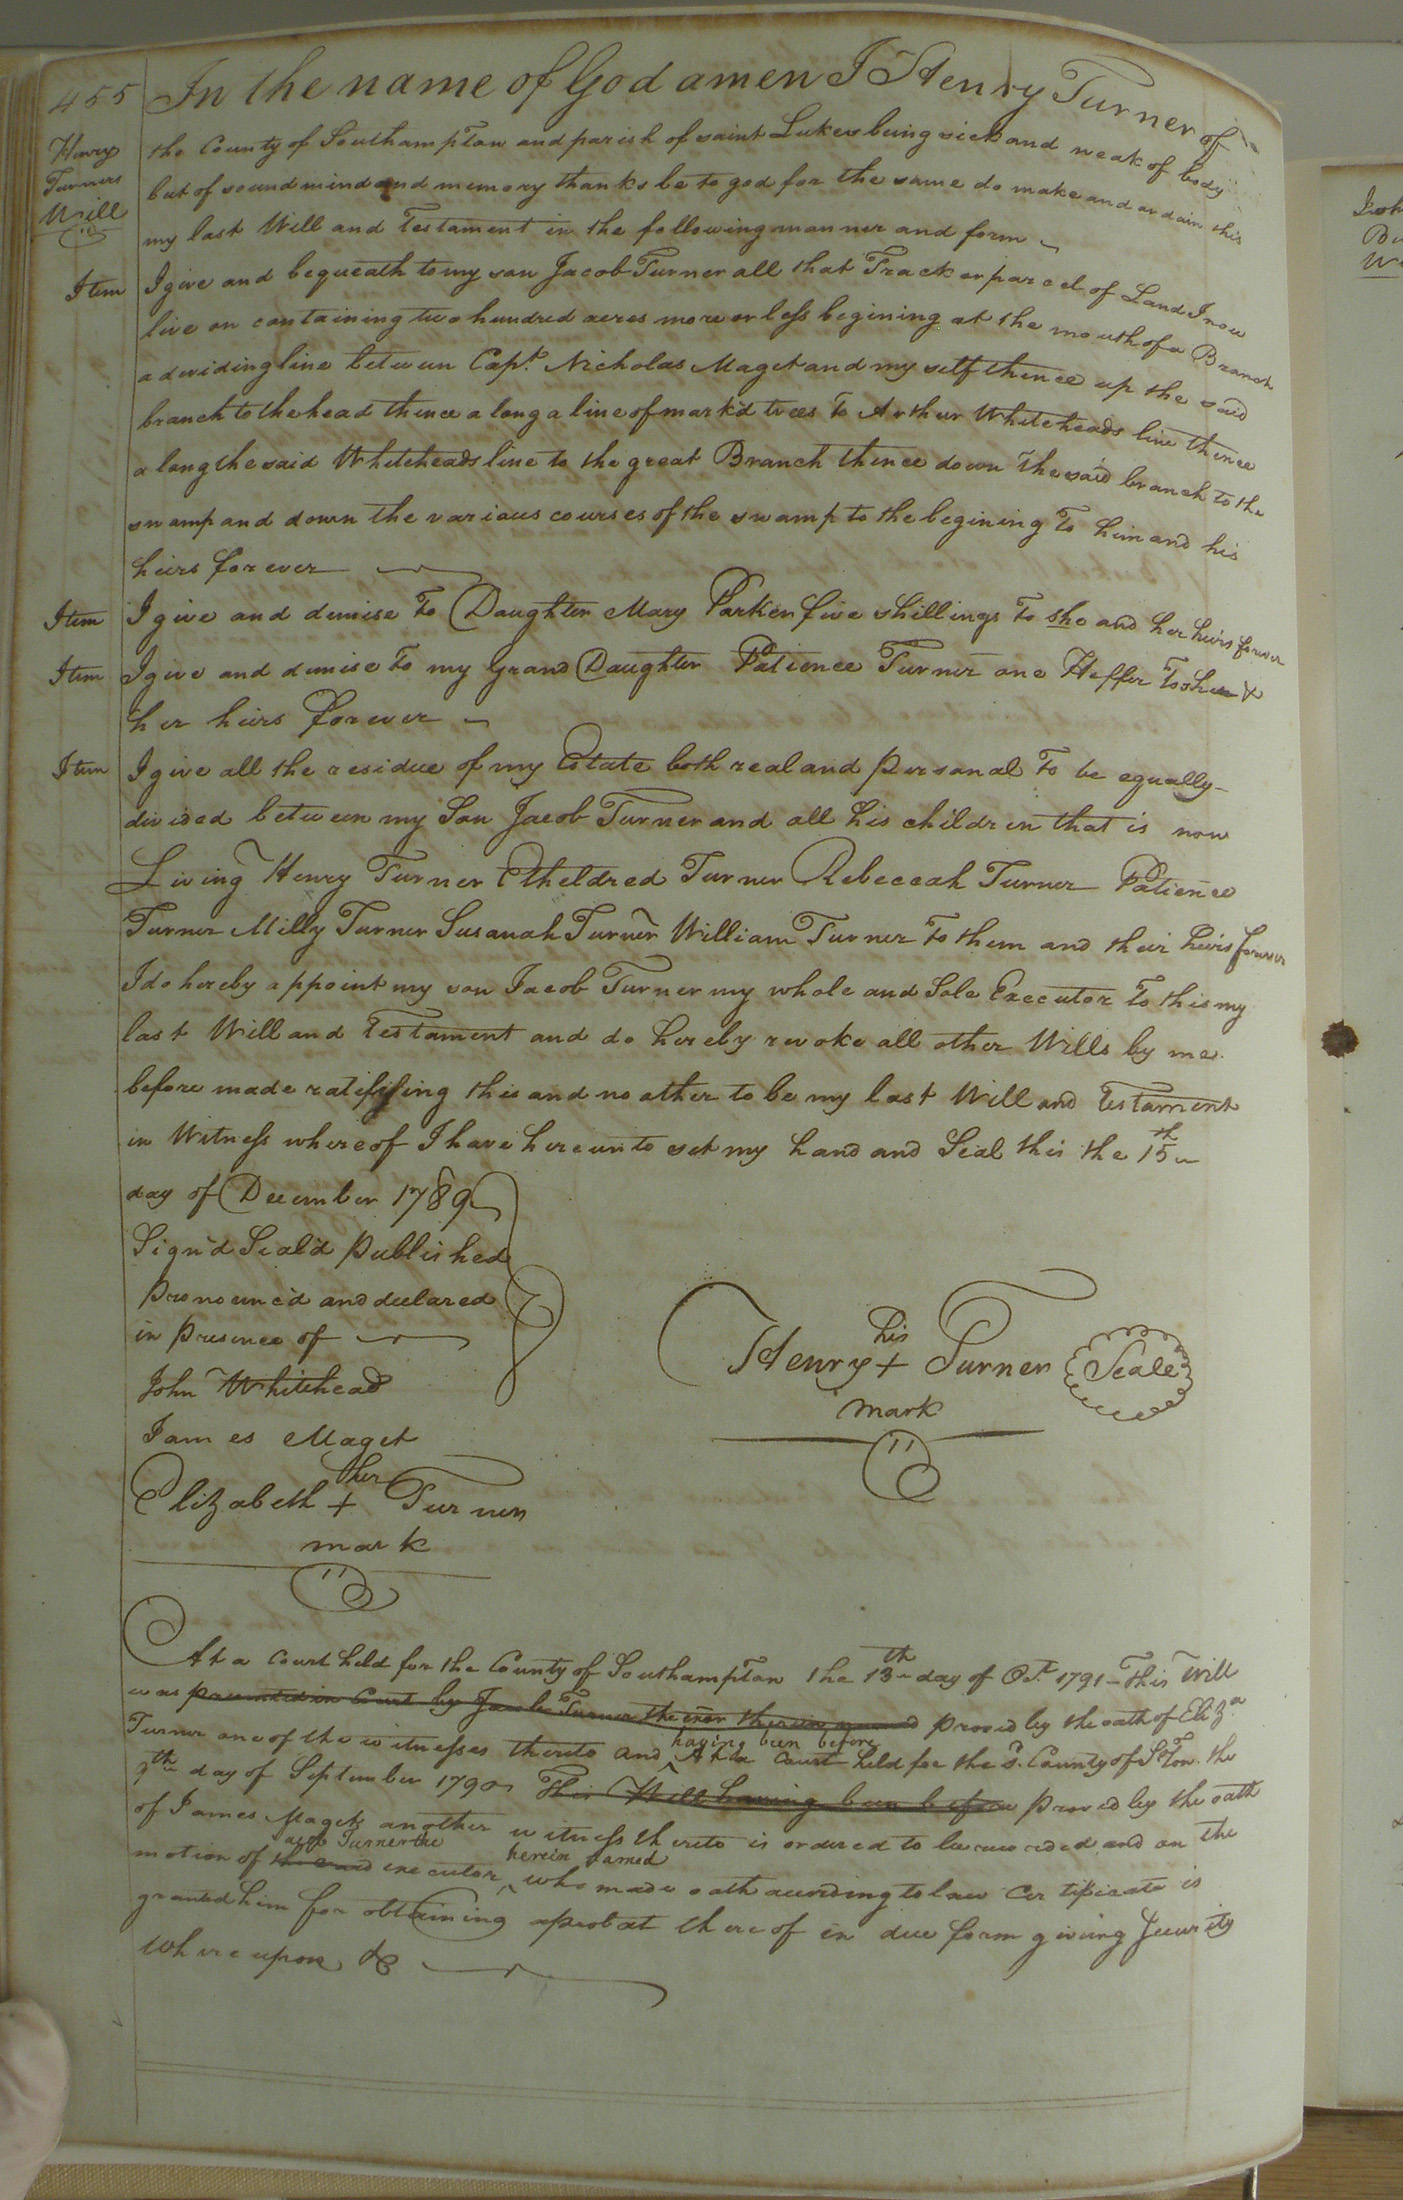 455 In the name of God amen I Henry Turner of
Henry Turners Will
the County of Southampton and parish of saint Lukes being sick and weak of body
but of sound mind and memory thanks be to god for the same do make and ardain this
my last Will and Testament in the following manner and form
Item I give and bequeath to my son Jacob Turner all that Track or parcel of Land I now
live on containing two hundred acres more or less begining at the mouth of a Branch
a dividing line between Capt. Nicholas Maget and my self thence up the said
branch to the head thence along a line of mark'd trees To Arthur Whiteheads line thence
along the said Whiteheads line to the great Branch thence down The said branch to the
swamp and down the various courses of the swamp to the begining To him and his
heirs forever
Item I give and demise To Daughter Mary Parker five shillings To she and her heirs forever
Item I give and demise To my Grand Daughter Patience Turner one Heffer To she &
her heirs forever
Item I give all the residue of my Estate both real and personal To be equally
divided between my Son Jacob Turner and all his children that is now
Living Henry Turner Etheldred Turner Rebeccah Turner Patience
Turner Milly Turner Susanah Turner William Turner To them and their heirs forever
I do hereby appoint my son Jacob Turner my whole and Sole Executor To this my
last Will and Testament and do hereby revoke all other Wills by me
before made ratifying this and no other to be my last Will and Testament
in Witness whereof I have hereunto set my hand and Seal this the 15th
day of December 1789
Sign'd Seal'd Published
Pronounc'd and declared
in Presence of
John Whitehead
James Maget
her
Elizabeth + Turner
mark
his
Henry + Turner Seale
mark
At a Court held for the County of Southampton the 13th day of Oct. 1791 - This Will
was presented in Court by Jacob Turner the exor therein named proved by the oath of Eliza
Turner one of the witnesses thereto and having been before At a Court held for the sd. County of S.Ton the
9th day of September 1790 This Will having been before proved by the oath
of James Maget another witness thereto is ordered to be recorded and on the
motion of Jacob Turner the executor herein named who made oath according to law Certificate is
granted him for obtaining a probat thereof in due form giving Security
Whereupon &c